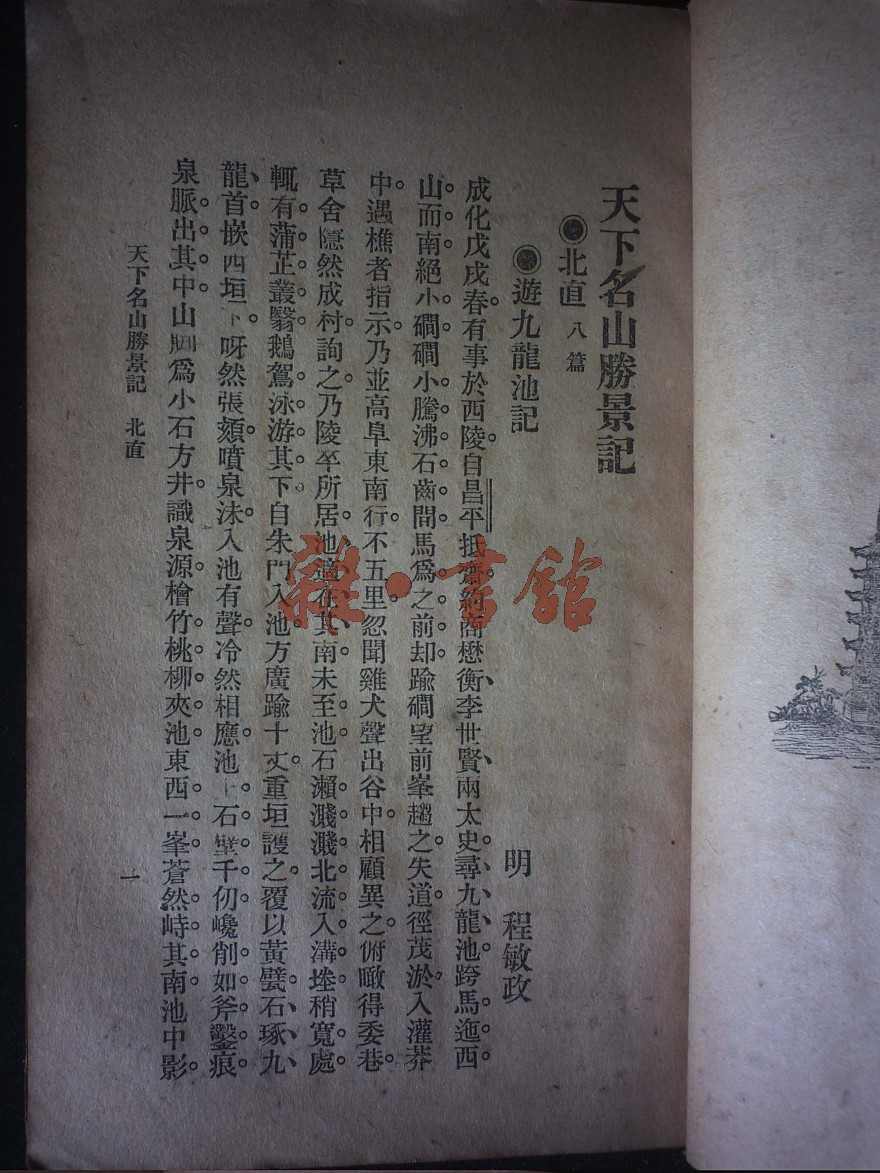 天下名山勝景記
◉北直 八篇
◉遊九龍池記
明 程敏政
成化戊戌春。有事於西陵。自昌平抵齋。約商懋衡、李世賢、兩太史。尋九龍池。跨馬迤西。
山而南。絕小磵。磵小騰沸。石齒間馬爲之前却。踰磵望前峯趨之。失道。徑茂淤。入灌莽
中。遇樵者指示。乃並高阜東南行。不五里。忽聞雞犬聲出谷中。相顧異之。俯瞰得委巷。
草舍隱然成村。詢之。乃陵卒所居。池適在其南。未至池。石瀨濺濺。北流入溝塍。稍寬處。
輒有蒲芷叢翳。鵝鴐泳游其下。自朱門入池。方廣踰十丈。重垣護之。覆以黃甓。石琢九
龍、首。嵌西垣下。呀然張頦。噴泉沫入池有聲。冷然相應。池上石壁千仞。巉削如斧鑿痕。
泉脈。出其中。山胭爲小石方井。識泉源。檜竹桃柳夾池東西。一峯蒼然峙其南。池中影
天下名山勝景記 北直
一
雜·書館